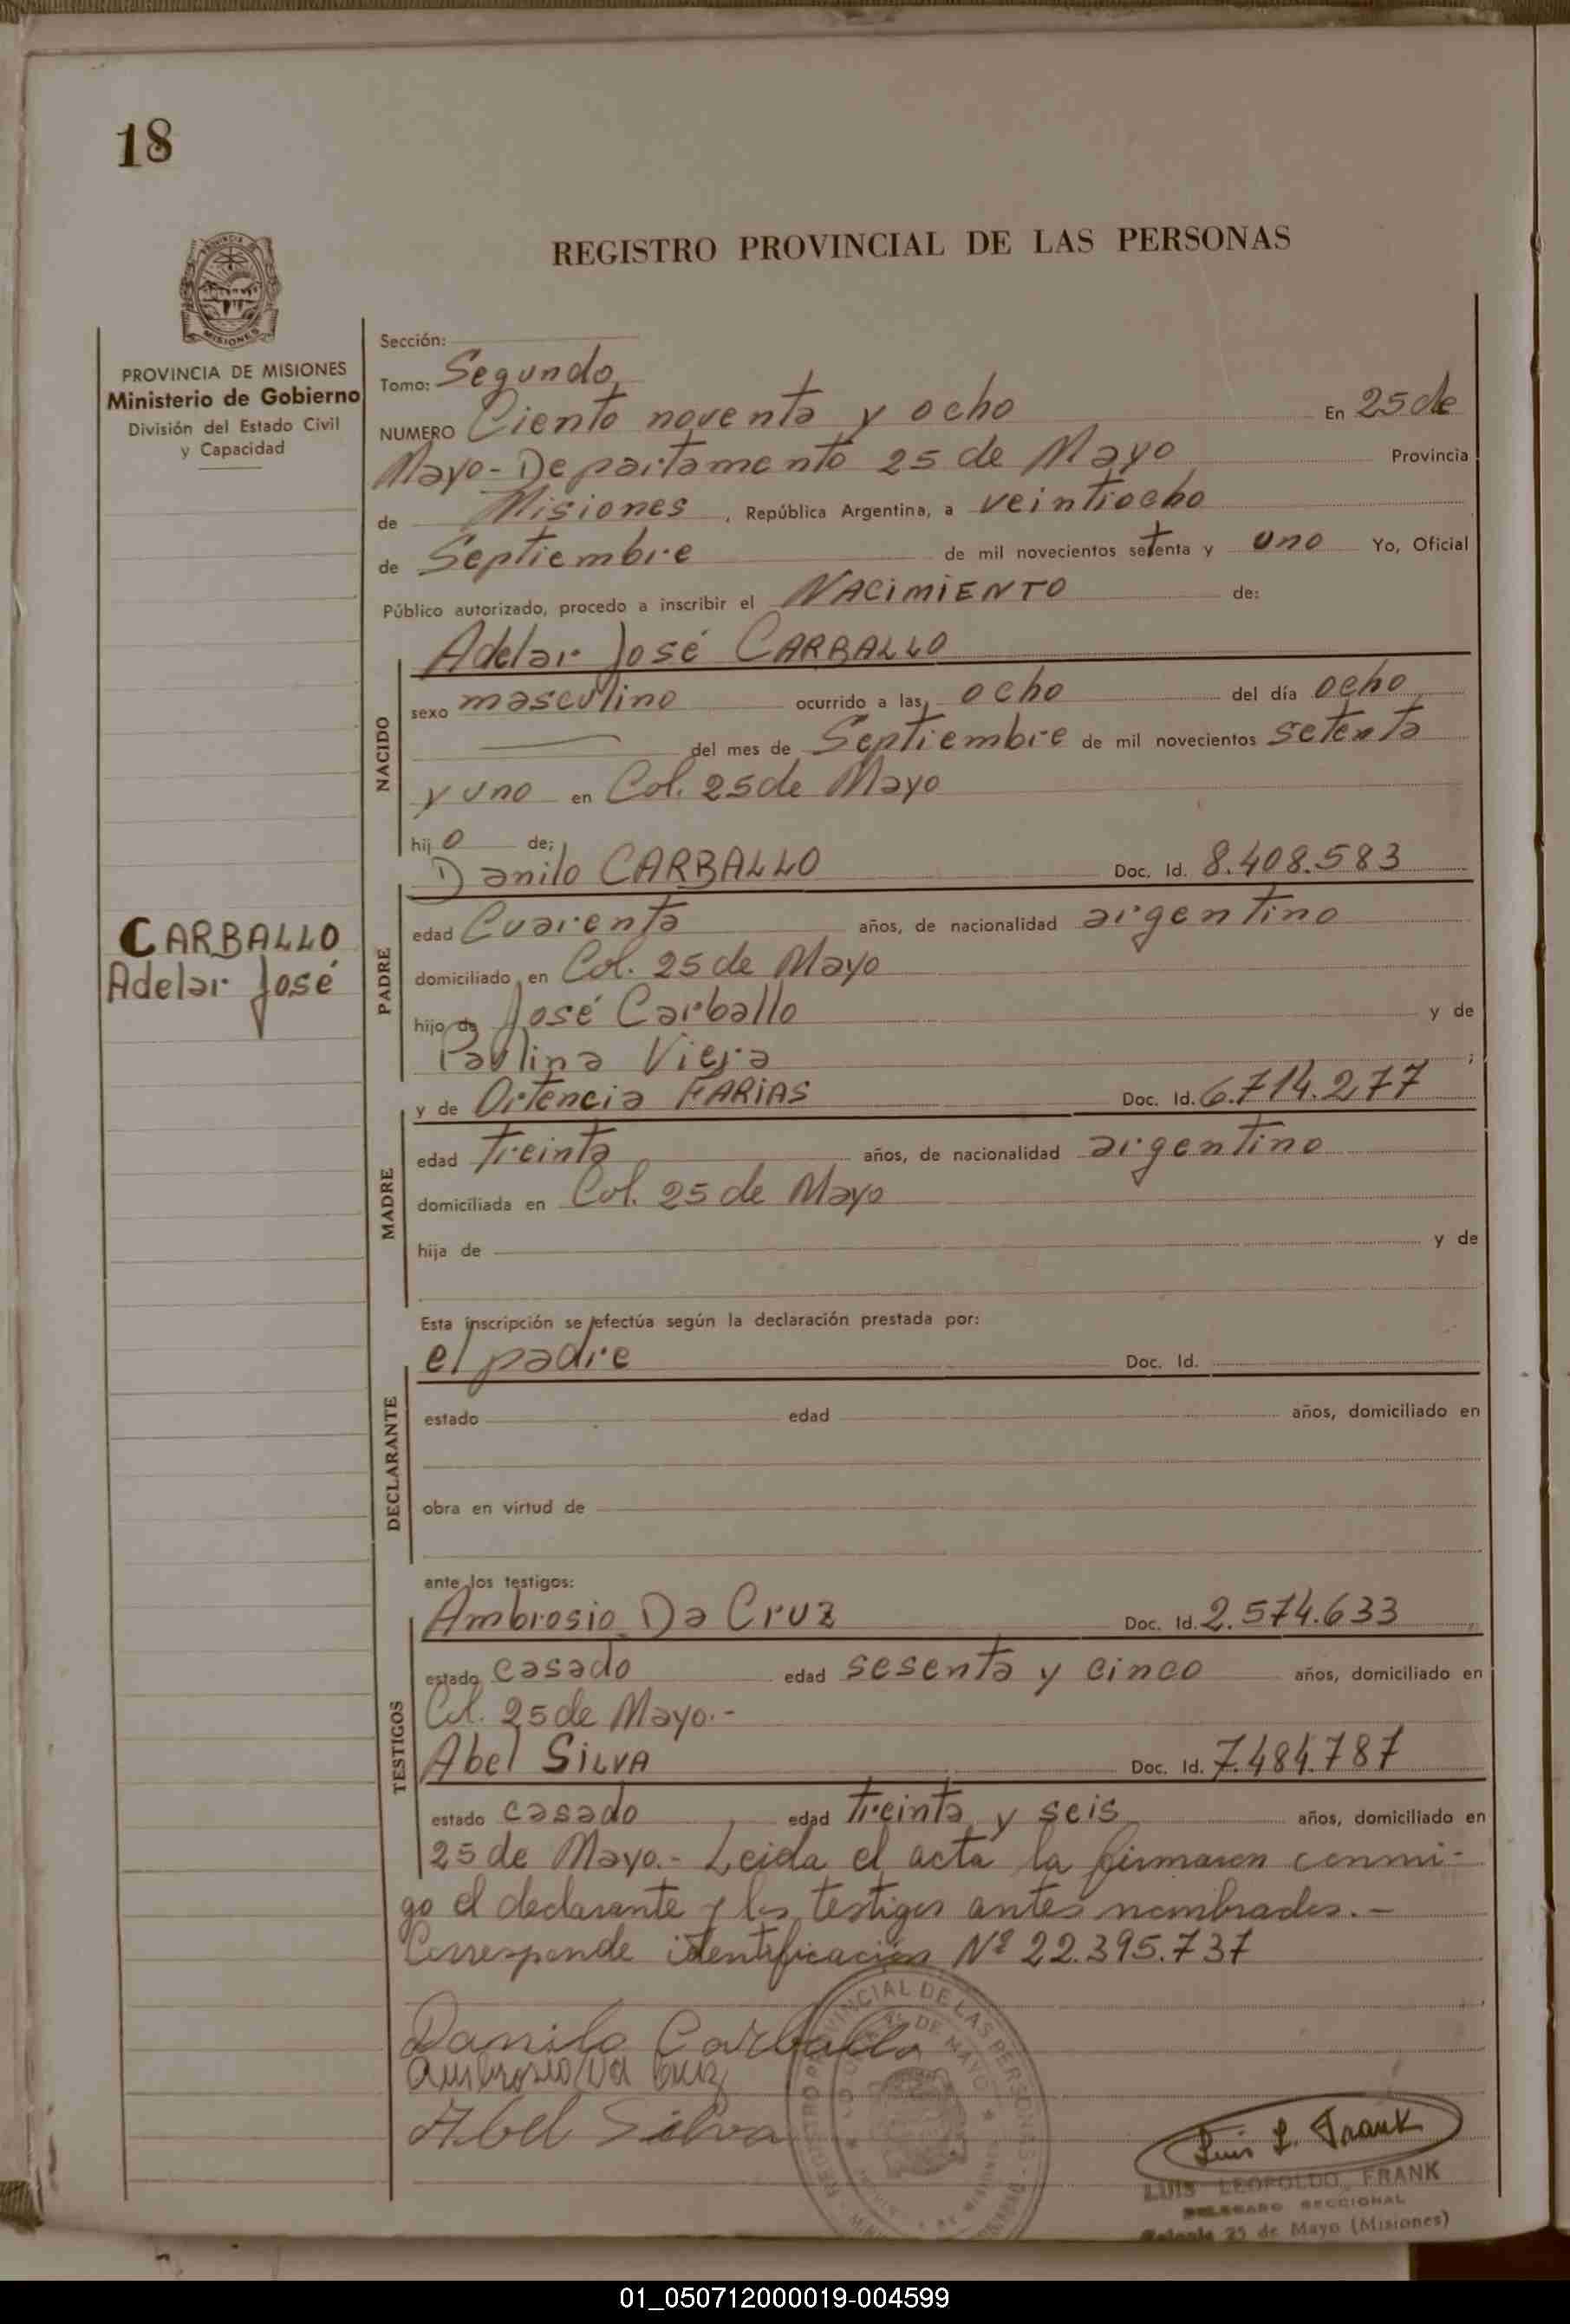 18
REGISTRO PROVINCIAL DE LAS PERSONAS
MISIONES
PROVINCIA DE MISIONES
Ministerio de Gobierno
División del Estado Civil
y Capacidad
Sección:
Tomo: Segundo
NUMERO Ciento noventa y ocho En 25 de
Mayo - Departamento 25 de Mayo Provincia
de Misiones, República Argentina, a veintiocho
de Septiembre de mil novecientos setenta y uno Yo, Oficial
Público autorizado, procedo a inscribir el NACIMIENTO de:
Adelar José CARBALLO
NACIDO
sexo masculino ocurrido a las ocho del día ocho
del mes de Septiembre de mil novecientos setenta
y uno en Col. 25 de Mayo
hij o de;
Danilo CARBALLO Doc. Id. 8.408.583
CARBALLO
Adelar José
PADRE
edad Cuarenta años, de nacionalidad argentino
domiciliado en Col. 25 de Mayo
hijo de José Carballo y de
Paulina Viera;
y de Ortencia FARIAS Doc. Id. 6.714.277
MADRE
edad treinta años, de nacionalidad argentino
domiciliada en Col. 25 de Mayo
hija de y de
Esta inscripción se efectúa según la declaración prestada por:
el padre Doc. Id.
DECLARANTE
estado edad años, domiciliado en
obra en virtud de
ante los testigos:
Ambrosio Da Cruz Doc. Id. 2.574.633
TESTIGOS
estado casado edad sesenta y cinco años, domiciliado en
Col. 25 de Mayo.-
Abel SILVA Doc. Id. 7.484.787
estado casado edad treinta y seis años, domiciliado en
25 de Mayo.- Leida el acta la firmaron conmi-
go el declarante y los testigos antes nombrados.-
Corresponde identificación Nº 22.395.737
Danilo Carballo
Ambrosio Da Cruz
Abel Silva
REGISTRO PROVINCIAL DE LAS PERSONAS
Luis L. Frank
LUIS LEOPOLDO FRANK
DELEGADO SECCIONAL
Colonia 25 de Mayo (Misiones)
01_050712000019-004599